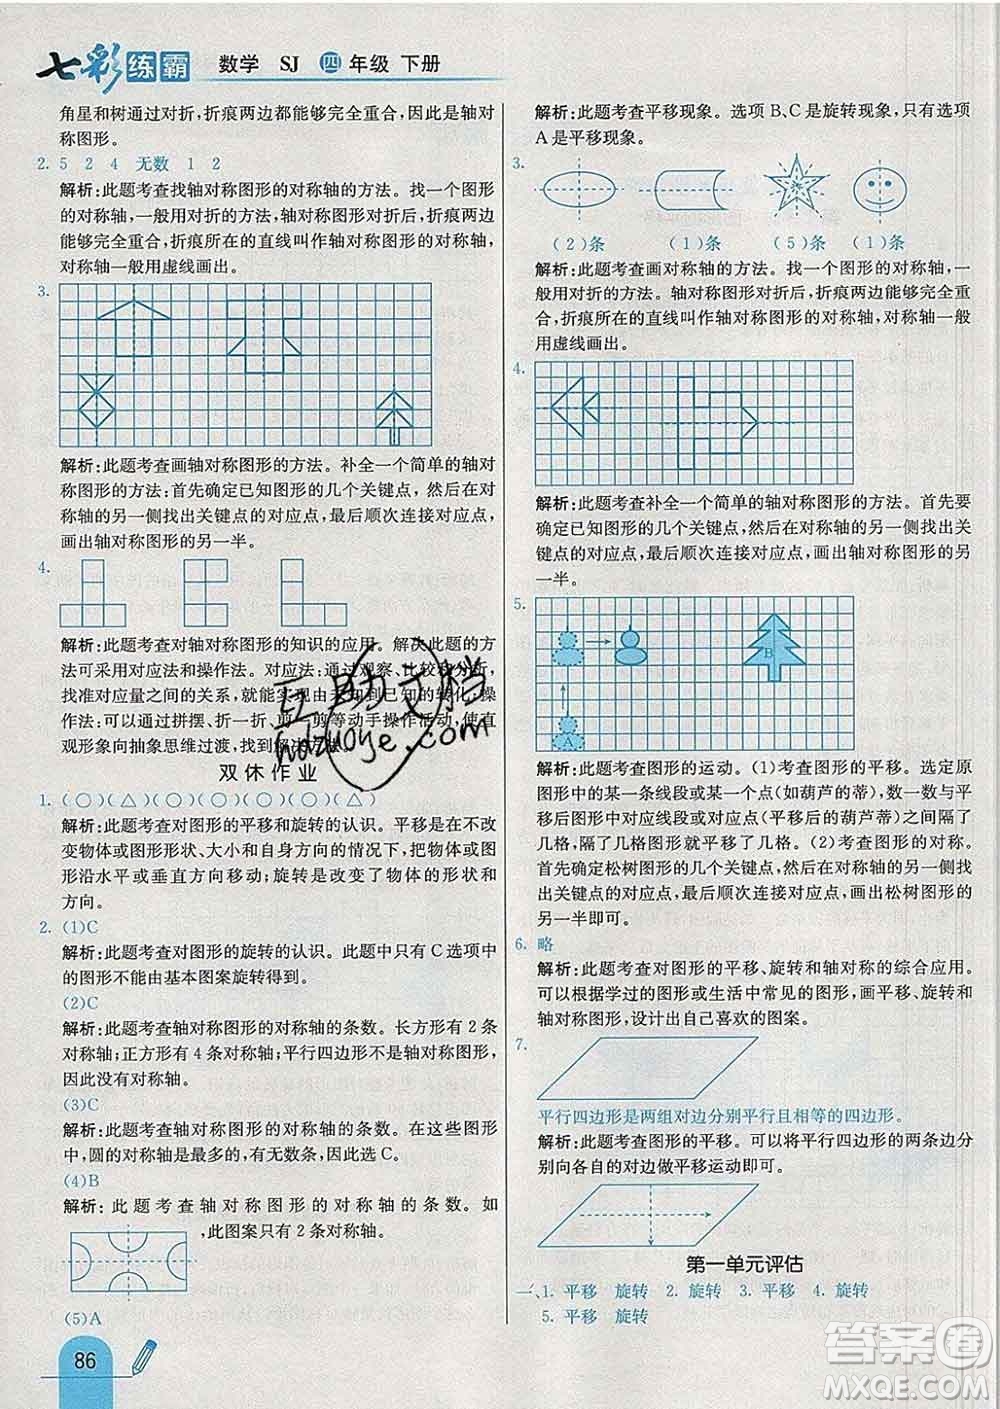 七彩练霸 数学 SJ 四年级 下册
角星和树通过对折，折痕两边都能够完全重合，因此是轴对
称图形。
2. 5 2 4 无数 1 2
解析：此题考查找轴对称图形的对称轴的方法。找一个图形
的对称轴，一般用对折的方法，轴对称图形对折后，折痕两边
能够完全重合，折痕所在的直线叫作轴对称图形的对称轴，
对称轴一般用虚线画出。
3.
解析：此题考查画轴对称图形的方法。补全一个简单的轴对
称图形：首先确定已知图形的几个关键点，然后在对
称轴的另一侧找出关键点的对应点，最后顺次连接对应点，
画出轴对称图形的另一半。
4.
解析：此题考查对轴对称图形的知识的应用。解决此题的方
法可采用对应法和操作法。对应法：通过观察、比较和分析，
找准对应量之间的关系，就能实现由未知到已知的转化；操作
法：可以通过拼摆、折一折、剪一剪等动手操作活动，使直
观形象向抽象思维过渡，找到解决方法。
双休作业
1. (○)(△)(○)(○)(○)(△)
解析：此题考查对图形的平移和旋转的认识。平移是在不改
变物体或图形形状、大小和自身方向的情况下，把物体或图
形沿水平或垂直方向移动；旋转是改变了物体的形状和
方向。
2. (1)C
解析：此题考查对图形的旋转的认识。此题中只有C选项中
的图形不能由基本图案旋转得到。
(2)C
解析：此题考查轴对称图形的对称轴的条数。长方形有2条
对称轴；正方形有4条对称轴；平行四边形不是轴对称图形，
因此没有对称轴。
(3)C
解析：此题考查轴对称图形的对称轴的条数。在这些图形
中，圆的对称轴是最多的，有无数条，因此选C。
(4)B
解析：此题考查轴对称图形的对称轴的条数。如
，此图案只有2条对称轴。
(5)A
86
解析：此题考查平移现象。选项B、C是旋转现象，只有选项
A是平移现象。
3.
(2)条 (1)条 (5)条 (1)条
解析：此题考查画对称轴的方法。找一个图形的对称轴，一
般用对折的方法。轴对称图形对折后，折痕两边能够完全重
合，折痕所在的直线叫作轴对称图形的对称轴，对称轴一般
用虚线画出。
4.
解析：此题考查补全一个简单的轴对称图形的方法。首先要
确定已知图形的几个关键点，然后在对称轴的另一侧找出关
键点的对应点，最后顺次连接对应点，画出轴对称图形的另
一半。
5.
B
A
解析：此题考查图形的运动。(1)考查图形的平移。选定原
图形中的某一条线段或某一点（如葫芦的蒂），数一数平移
后图形中对应线段或对应点（平移后的葫芦蒂）之间隔了
几格，隔了几格图形就平移了几格。(2)考查图形的对称。
首先确定松树图形的几个关键点，然后在对称轴的另一侧找
出关键点的对应点，最后顺次连接对应点，画出松树图形的
另一半即可。
6. 略
解析：此题考查对图形的平移、旋转和轴对称的综合应用。
可以根据学过的图形或生活中常见的图形，画平移、旋转和
轴对称图形，设计出自己喜欢的图案。
7.
平行四边形是两组对边分别平行且相等的四边形。
解析：此题考查图形的平移。可以将平行四边形的两条边分
别向各自的对边做平移运动即可。
第一单元评估
一、1. 平移 旋转 2. 旋转 3. 平移 4. 旋转
5. 平移 旋转
互助文档
hdzuoye.com
答案圈
MXQE.COM